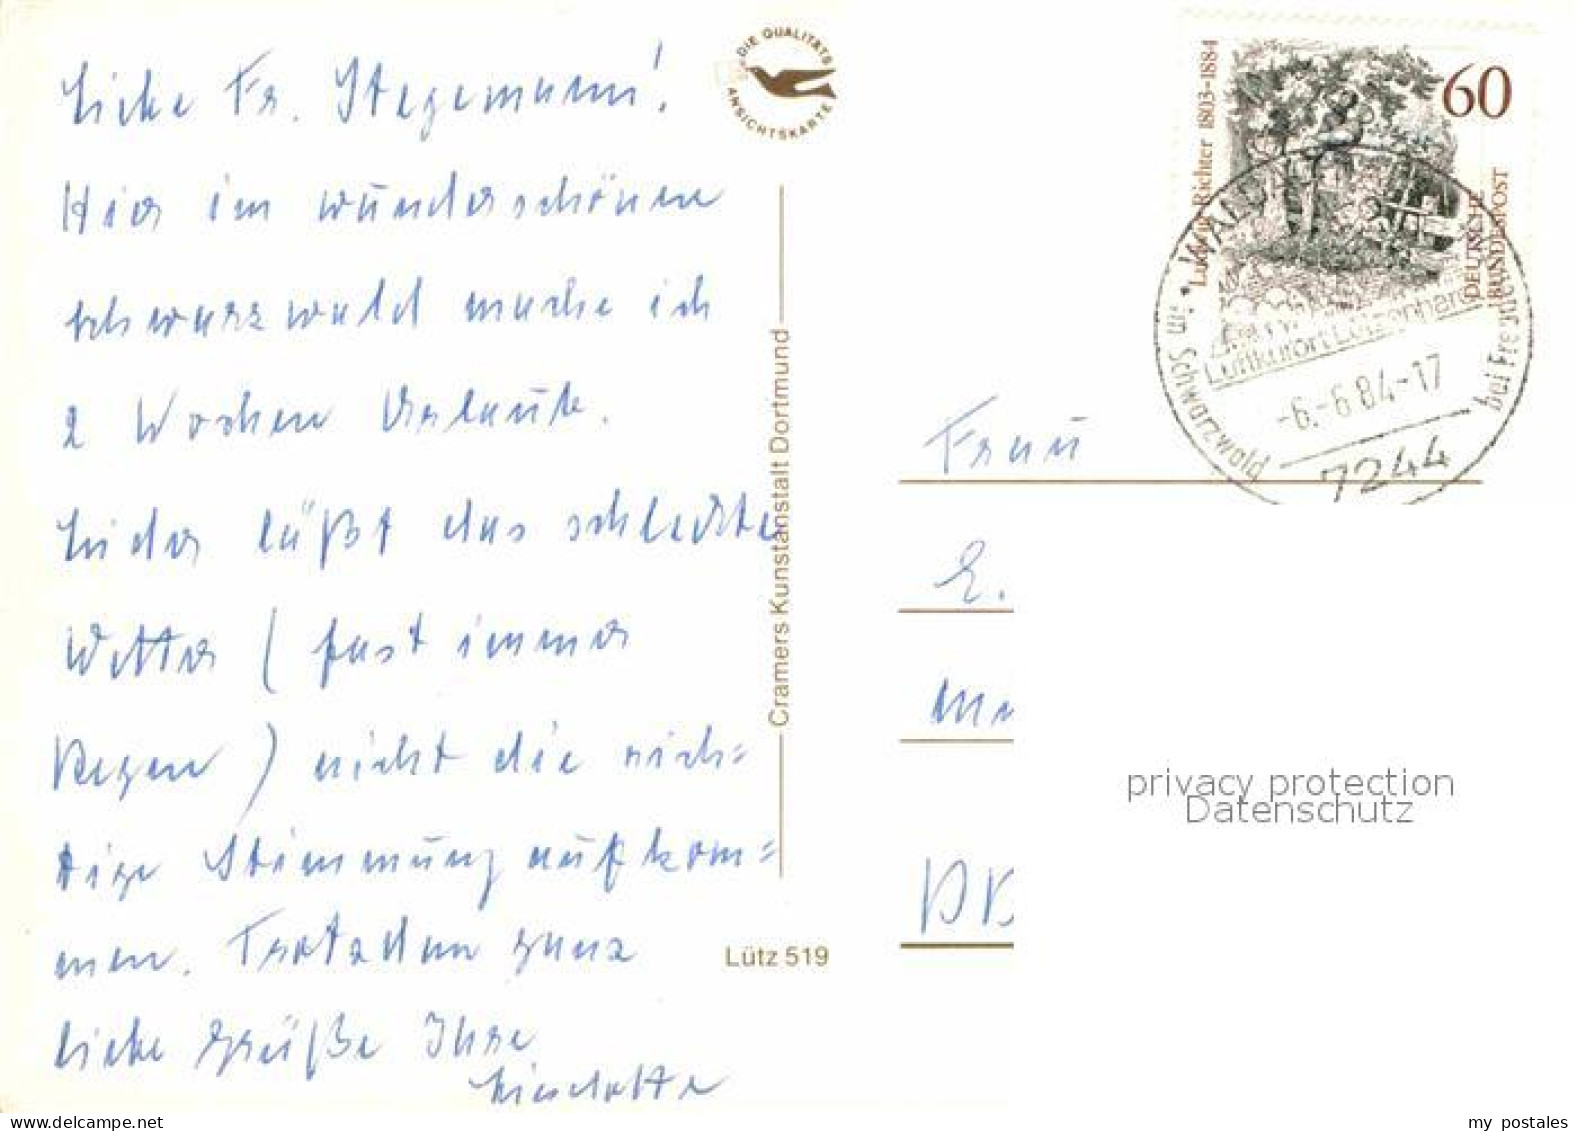 Liebe Fr. Stegemann!
Hier im wunderschönen
Schwarzwald mache ich
2 Wochen Urlaub.
Leider läßt das schlechte
Wetter (fast immer
Regen) nicht die rich=
tige Stimmung aufkom=
men. Trotzdem ganz
liebe Grüße Ihre
Lieselotte
DIE QUALITÄTS
ANSICHTSKARTE
Cramers Kunstanstalt Dortmund
Lütz 519
Ludwig Richter 1803-1884
60
DEUTSCHE
BUNDESPOST
im Schwarzwald
Luftkurort Lützenhardt
-6.-6 84-17
7244
Frau
E.
privacy protection
Datenschutz
www.ansichtskartenversand.com
my postales